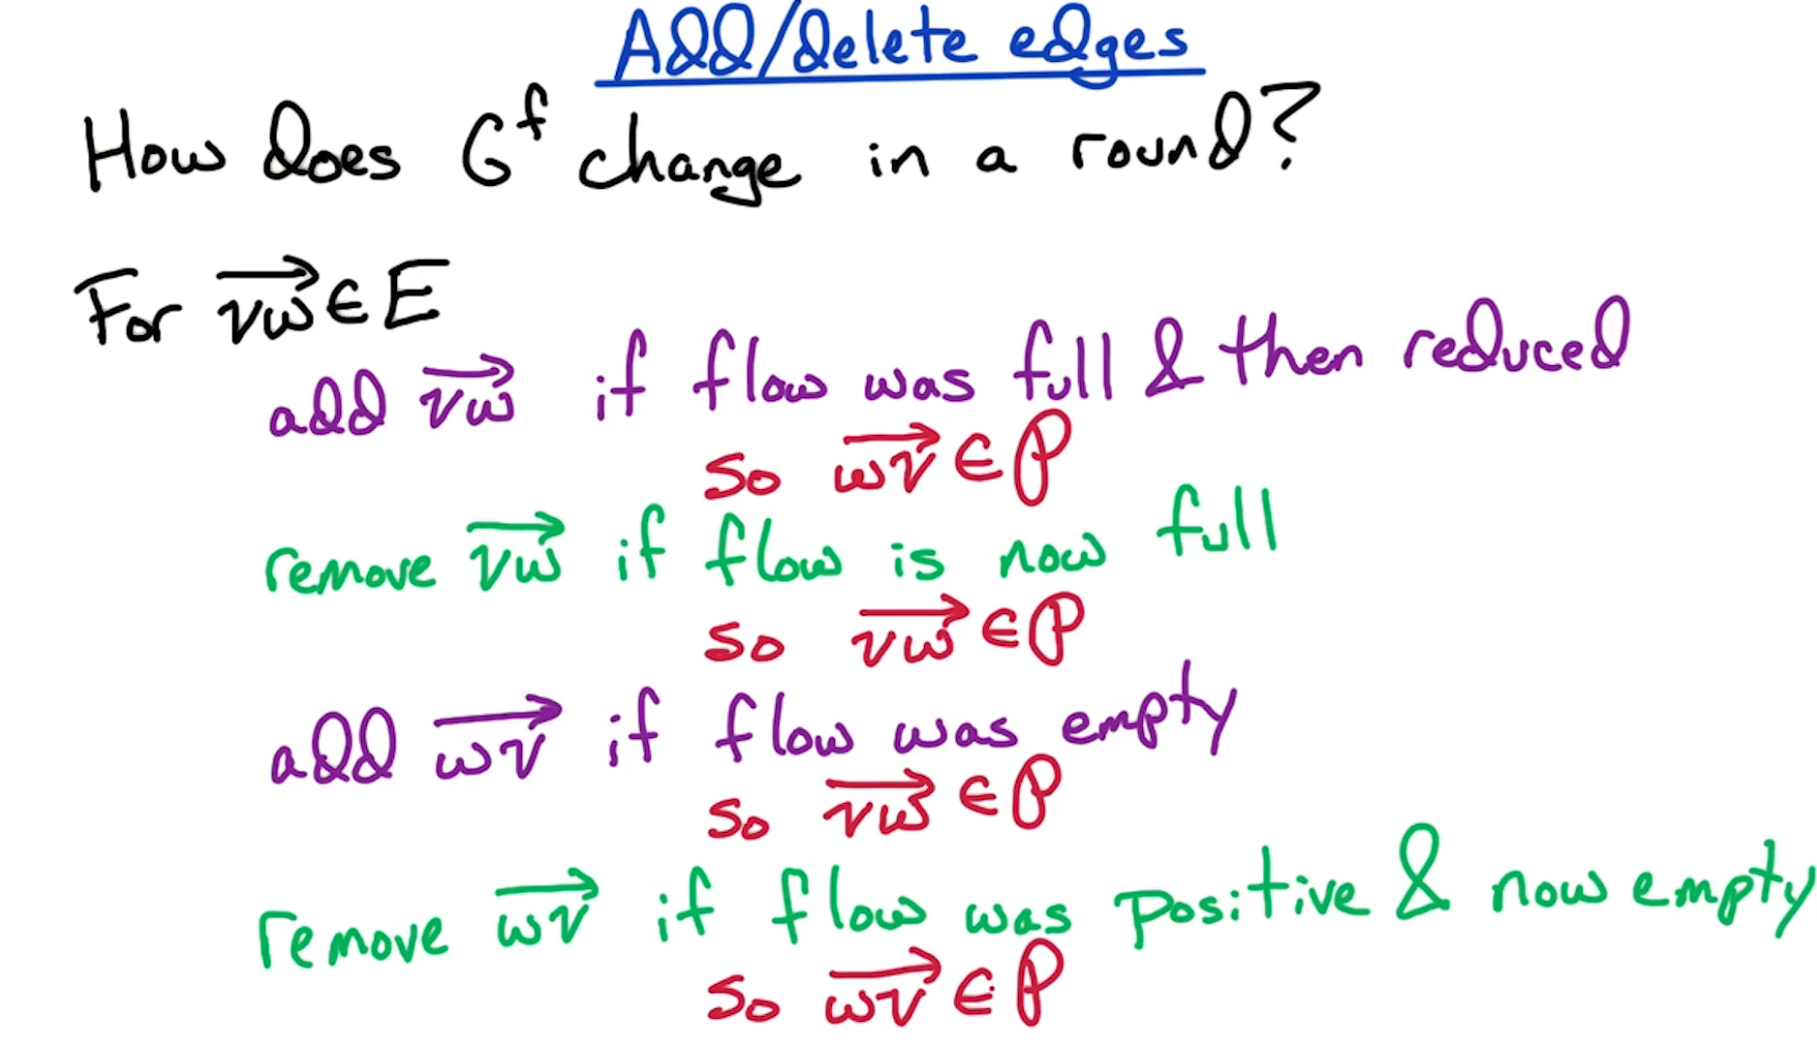 Add/delete edges
How does G^f change in a round?
For \overrightarrow{vw} ∈ E
add \overrightarrow{vw} if flow was full & then reduced
so \overrightarrow{wv} ∈ P
remove \overrightarrow{vw} if flow is now full
so \overrightarrow{vw} ∈ P
add \overrightarrow{wv} if flow was empty
so \overrightarrow{vw} ∈ P
remove \overrightarrow{wv} if flow was positive & now empty
so \overrightarrow{wv} ∈ P